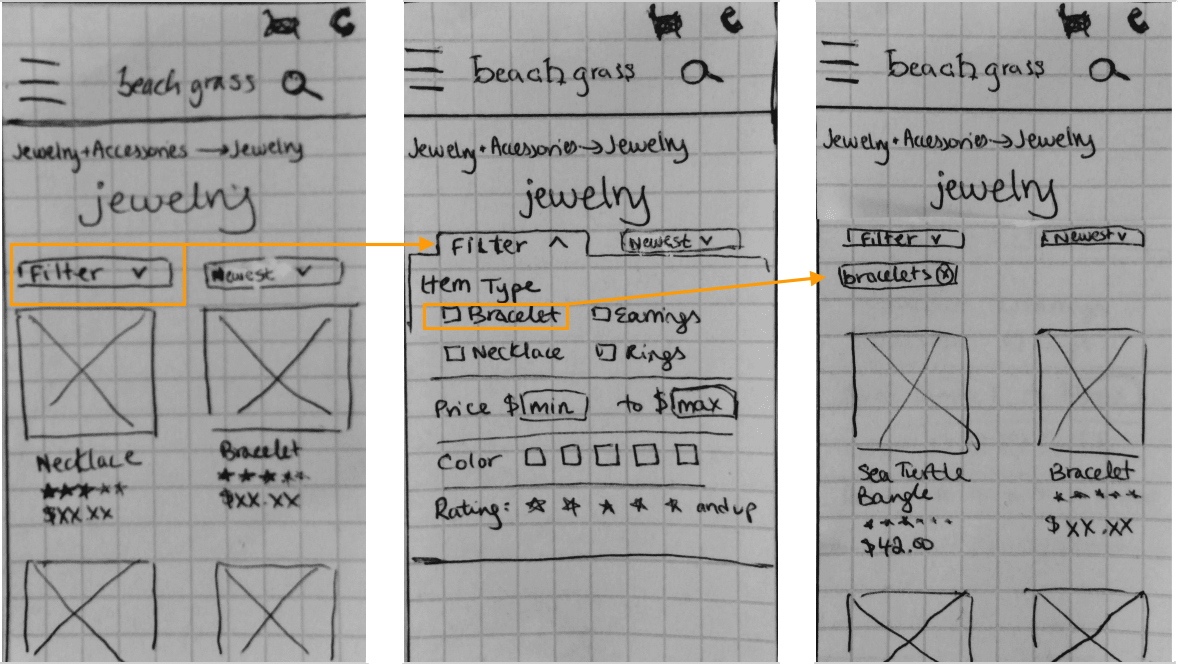 beach grass
Jewelry + Accessories → Jewelry
jewelry
Filter
Newest
Necklace
$XX.XX
Bracelet
$XX.XX
beach grass
Jewelry + Accessories → Jewelry
jewelry
Filter
Newest
Item Type
Bracelet Earrings
Necklace Rings
Price $ min to $ max
Color
Rating: and up
beach grass
Jewelry + Accessories → Jewelry
jewelry
Filter
Newest
bracelets x
Sea Turtle
Bangle
$42.00
Bracelet
$XX.XX